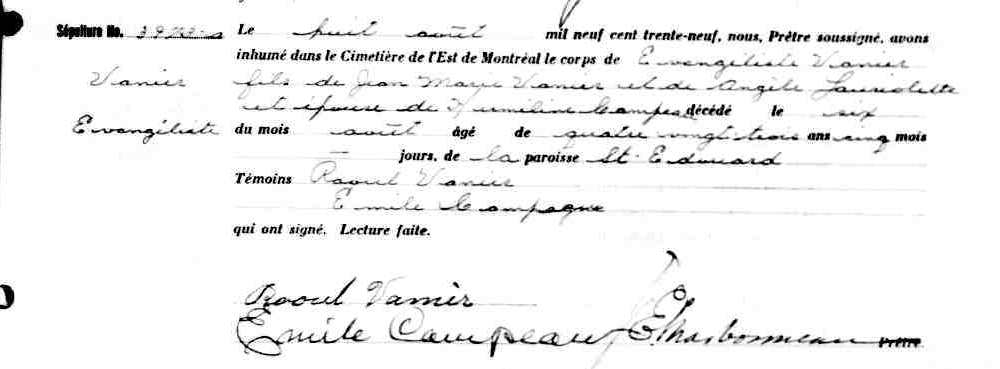 Sépulture No. Le huit août mil neuf cent trente-neuf, nous, Prêtre soussigné, avons
inhumé dans le Cimetière de l'Est de Montréal le corps de Evangéliste Vanier
Vanier fils de Jean Marie Vanier et de Angèle
et épouse de décédé le six
Evangéliste du mois août âgé de quatre vingt trois ans cinq mois
— jours, de la paroisse St. Edouard
Témoins Raoul Vanier
Emile Campagne
qui ont signé. Lecture faite.
Raoul Vanier
Emile Campeau E. Charbonneau Prêtre